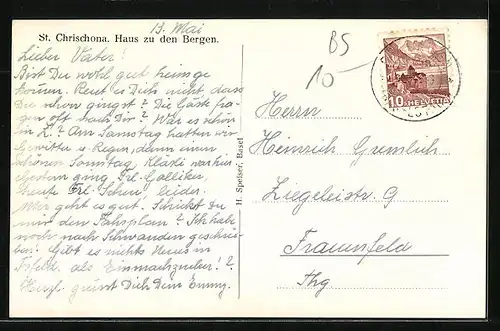 13. Mai
St. Chrischona. Haus zu den Bergen.
Lieber Vater!
Bist Du wohl gut heimge
kommen. Reut es Dich nicht, dass
Du schon gingst? Die Gäste fra-
gen oft nach Dir? War es schön
in Z.? Am Samstag hatten wir
Gewitter u. Regen, dann einen
schönen Sonntag, Klärli war hier.
Gestern ging Frl. Golliker,
heute Frl. Scheu leider.
Mir geht es gut. Schickst du
mir den Fahrplan? Ich habe
noch nach Schwanden geschrie-
ben. Gibt es nichts Neues in
als Einmachzucker!?
Herzl. grüsst Dich Dein Emmy.
H. Speiser, Basel
BS
10-
10 HELVETIA
Herrn
Heinrich Gremlich
Ziegeleistr. 9
Frauenfeld
Thg